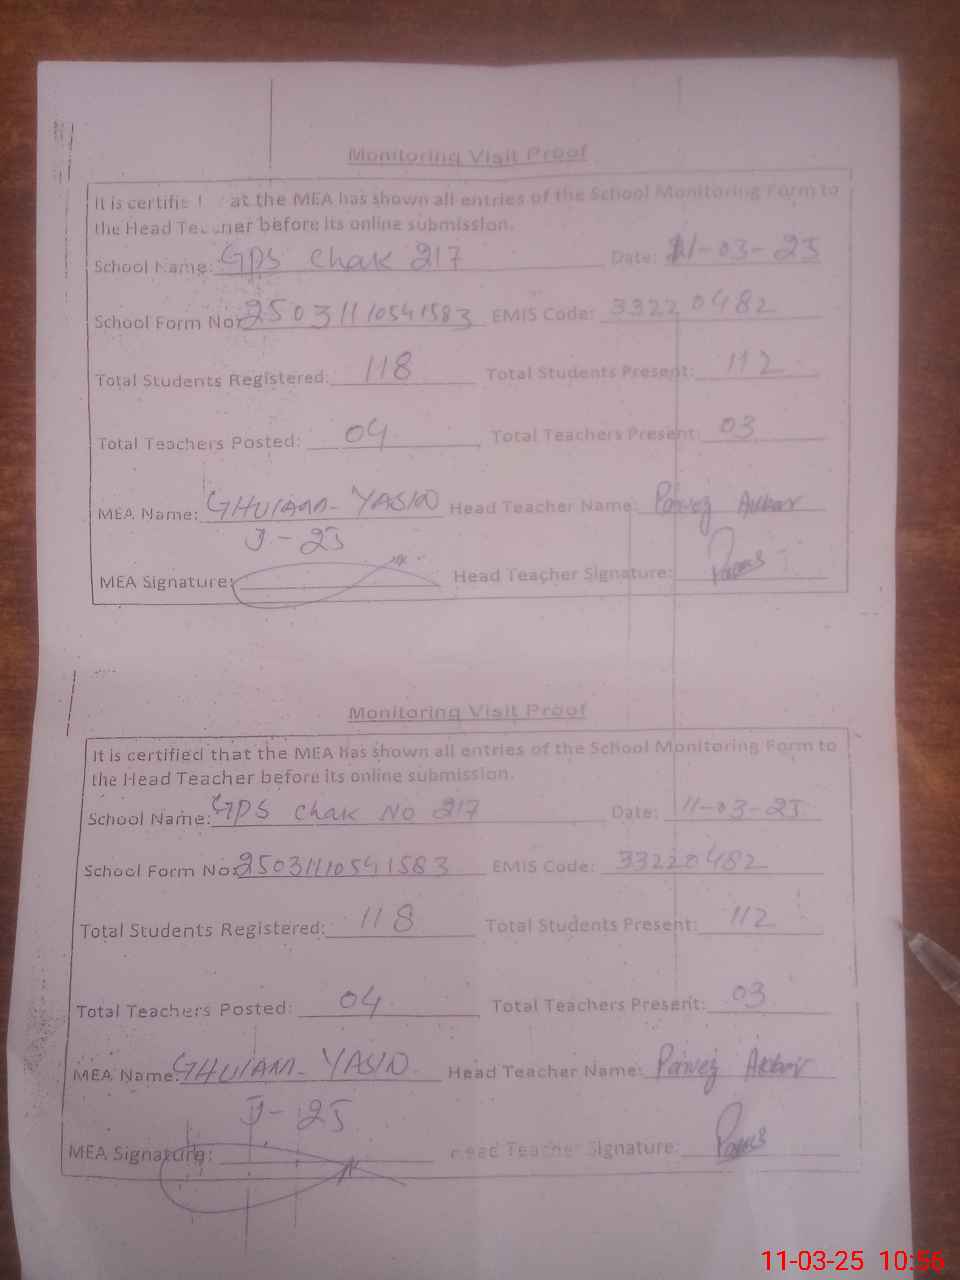 Monitoring Visit Proof
It is certifie at the MEA has shown all entries of the School Monitoring Form to
the Head Teacher before its online submission.
School Name: GPS Chak 217 Date: 11-03-25
School Form No: 25031110541583 EMIS Code: 33220482
Total Students Registered: 118 Total Students Present: 112
Total Teachers Posted: 04 Total Teachers Present: 03
MEA Name: GHULAM YASIN Head Teacher Name: Parvez Akbar
J-25
MEA Signature: Head Teacher Signature:
Monitoring Visit Proof
It is certified that the MEA has shown all entries of the School Monitoring Form to
the Head Teacher before its online submission.
School Name: GPS Chak No 217 Date: 11-03-25
School Form No: 25031110541583 EMIS Code: 33220482
Total Students Registered: 118 Total Students Present: 112
Total Teachers Posted: 04 Total Teachers Present: 03
MEA Name: GHULAM YASIN Head Teacher Name: Parvez Akbar
J-25
MEA Signature: Head Teacher Signature:
11-03-25 10:56